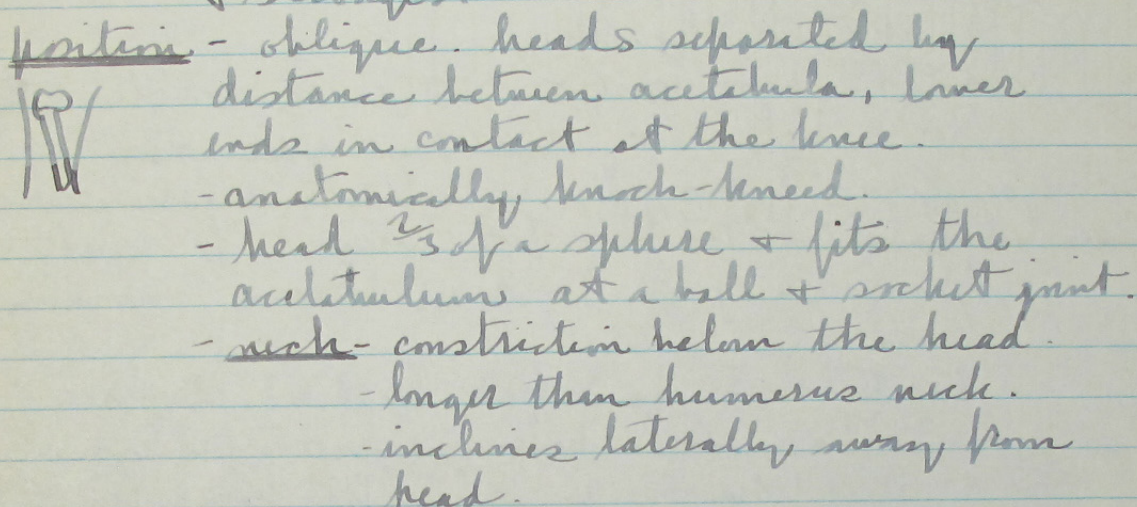 position - oblique. heads separated by
distance between acetabula, lower
ends in contact at the knee.
- anatomically knock-kneed.
- head 2/3 of a sphere + fits the
acetabulum at a ball + socket joint.
- neck - constriction below the head.
- longer than humerus neck.
- inclines laterally away from
head.